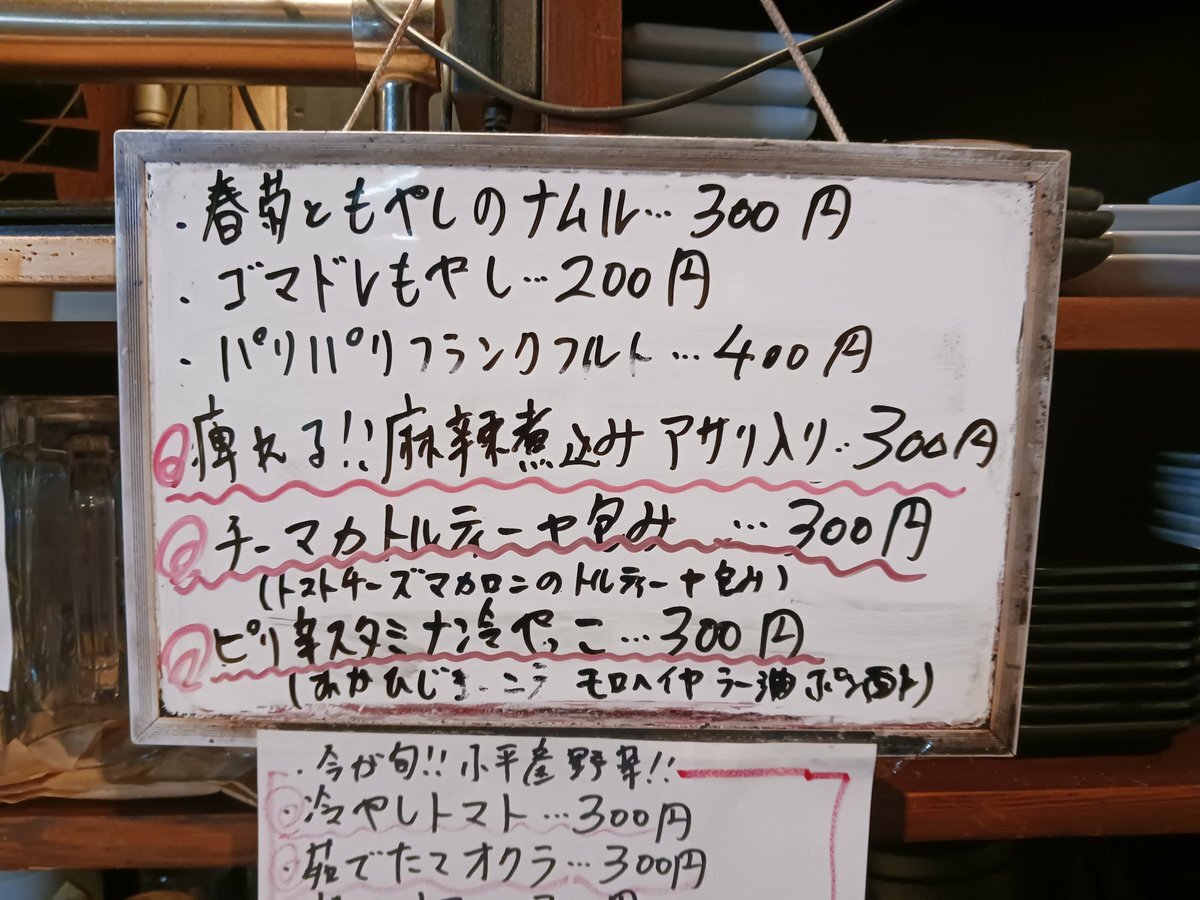 ・春菊ともやしのナムル…300円
・ゴマドレもやし…200円
・パリパリフランクフルト…400円
痺れる!!麻辣煮込みアサリ入り‥300円
チーマカトルティーヤ包み …300円
(トマトチーズマカロニのトルティーヤ包み)
ピリ辛スタミナ冷やっこ…300円
(おかひじき ニラ モロヘイヤ ラー油 ポン酢)
・今が旬!!小平産野菜!!
・冷やしトマト…300円
・茹でたてオクラ…300円